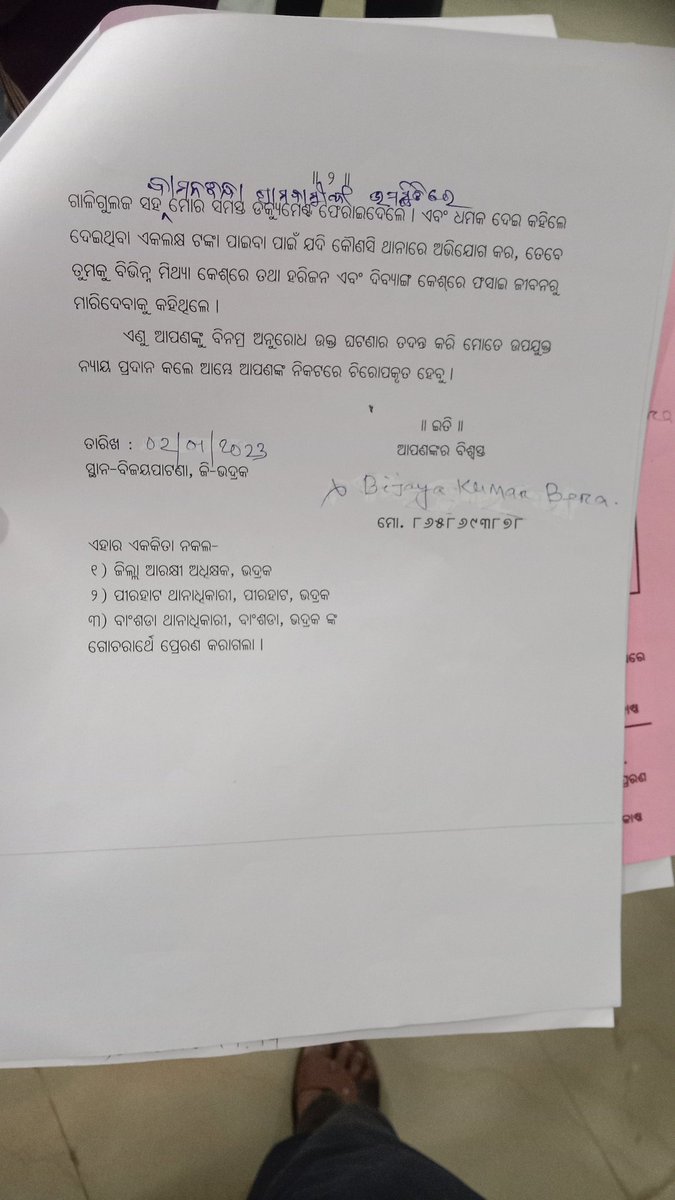 ॥ ୨ ॥
ଗାଳିଗୁଲଜ ସହ ମୋର ସମସ୍ତ ଡକ୍ୟୁମେଣ୍ଟ ଫେରାଇଦେଲେ । ଏବଂ ଧମକ ଦେଇ କହିଲେ
ଦେଇଥିବା ଏକଲକ୍ଷ ଟଙ୍କା ପାଇବା ପାଇଁ ଯଦି କୌଣସି ଥାନାରେ ଅଭିଯୋଗ କର, ତେବେ
ତୁମକୁ ବିଭିନ୍ନ ମିଥ୍ୟା କେଶ୍‌ରେ ତଥା ହରିଜନ ଏବଂ ଦିବ୍ୟାଙ୍ଗ କେଶ୍‌ରେ ଫସାଇ ଜୀବନରୁ
ମାରିଦେବାକୁ କହିଥିଲେ ।
ଏଣୁ ଆପଣଙ୍କୁ ବିନମ୍ର ଅନୁରୋଧ ଉକ୍ତ ଘଟଣାର ତଦନ୍ତ କରି ମୋତେ ଉପଯୁକ୍ତ
ନ୍ୟାୟ ପ୍ରଦାନ କଲେ ଆମ୍ଭେ ଆପଣଙ୍କ ନିକଟରେ ଚିରୋପକୃତ ହେବୁ ।
॥ ଇତି ॥
ତାରିଖ : 02/01/2023
ଆପଣଙ୍କର ବିଶ୍ୱସ୍ତ
ସ୍ଥାନ-ବିଜୟପାଟଣା, ଜି-ଭଦ୍ରକ
Bijaya Kumar Bera.
ମୋ. ୮୬୫୮୬୯୩୮୭୮
ଏହାର ଏକକିତା ନକଲ-
୧) ଜିଲ୍ଲା ଆରକ୍ଷୀ ଅଧିକ୍ଷକ, ଭଦ୍ରକ
୨) ପୀରହାଟ ଥାନାଧିକାରୀ, ପୀରହାଟ, ଭଦ୍ରକ
୩) ବାଂଶଡା ଥାନାଧିକାରୀ, ବାଂଶଡା, ଭଦ୍ରକ ଙ୍କ
ଗୋଚରାର୍ଥେ ପ୍ରେରଣ କରାଗଲା ।